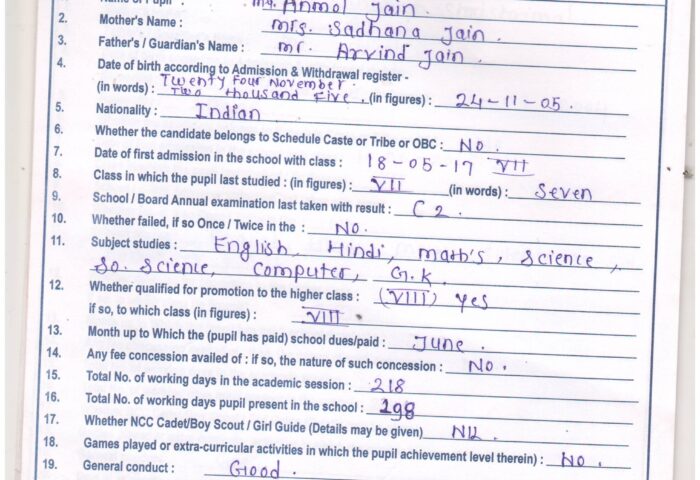 Name of Pupil : Mr. Anmol Jain.
2. Mother's Name : Mrs. Sadhana Jain.
3. Father's / Guardian's Name : Mr. Arvind Jain.
4. Date of birth according to Admission & Withdrawal register -
(in words) : Twenty Four November. Two thousand five. (in figures) : 24-11-05.
5. Nationality : Indian
6. Whether the candidate belongs to Schedule Caste or Tribe or OBC : No.
7. Date of first admission in the school with class : 18-05-17 VII
8. Class in which the pupil last studied : (in figures) : VII (in words) : Seven
9. School / Board Annual examination last taken with result : C2.
10. Whether failed, if so Once / Twice in the : No.
11. Subject studies : English, Hindi, math's, Science,
So. Science, Computer, G.K.
12. Whether qualified for promotion to the higher class : (VIII) yes
if so, to which class (in figures) : VIII
13. Month up to Which the (pupil has paid) school dues/paid : June.
14. Any fee concession availed of : if so, the nature of such concession : No.
15. Total No. of working days in the academic session : 218
16. Total No. of working days pupil present in the school : 198
17. Whether NCC Cadet/Boy Scout / Girl Guide (Details may be given) NIL
18. Games played or extra-curricular activities in which the pupil achievement level therein) : No.
19. General conduct : Good.